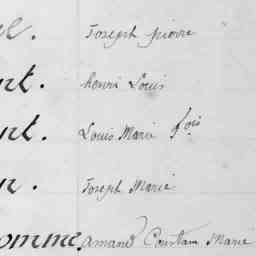 Joseph pierre
nt. henri Louis
nt. Louis Marie fois
n. Joseph Marie
omme. amand Constan Marie